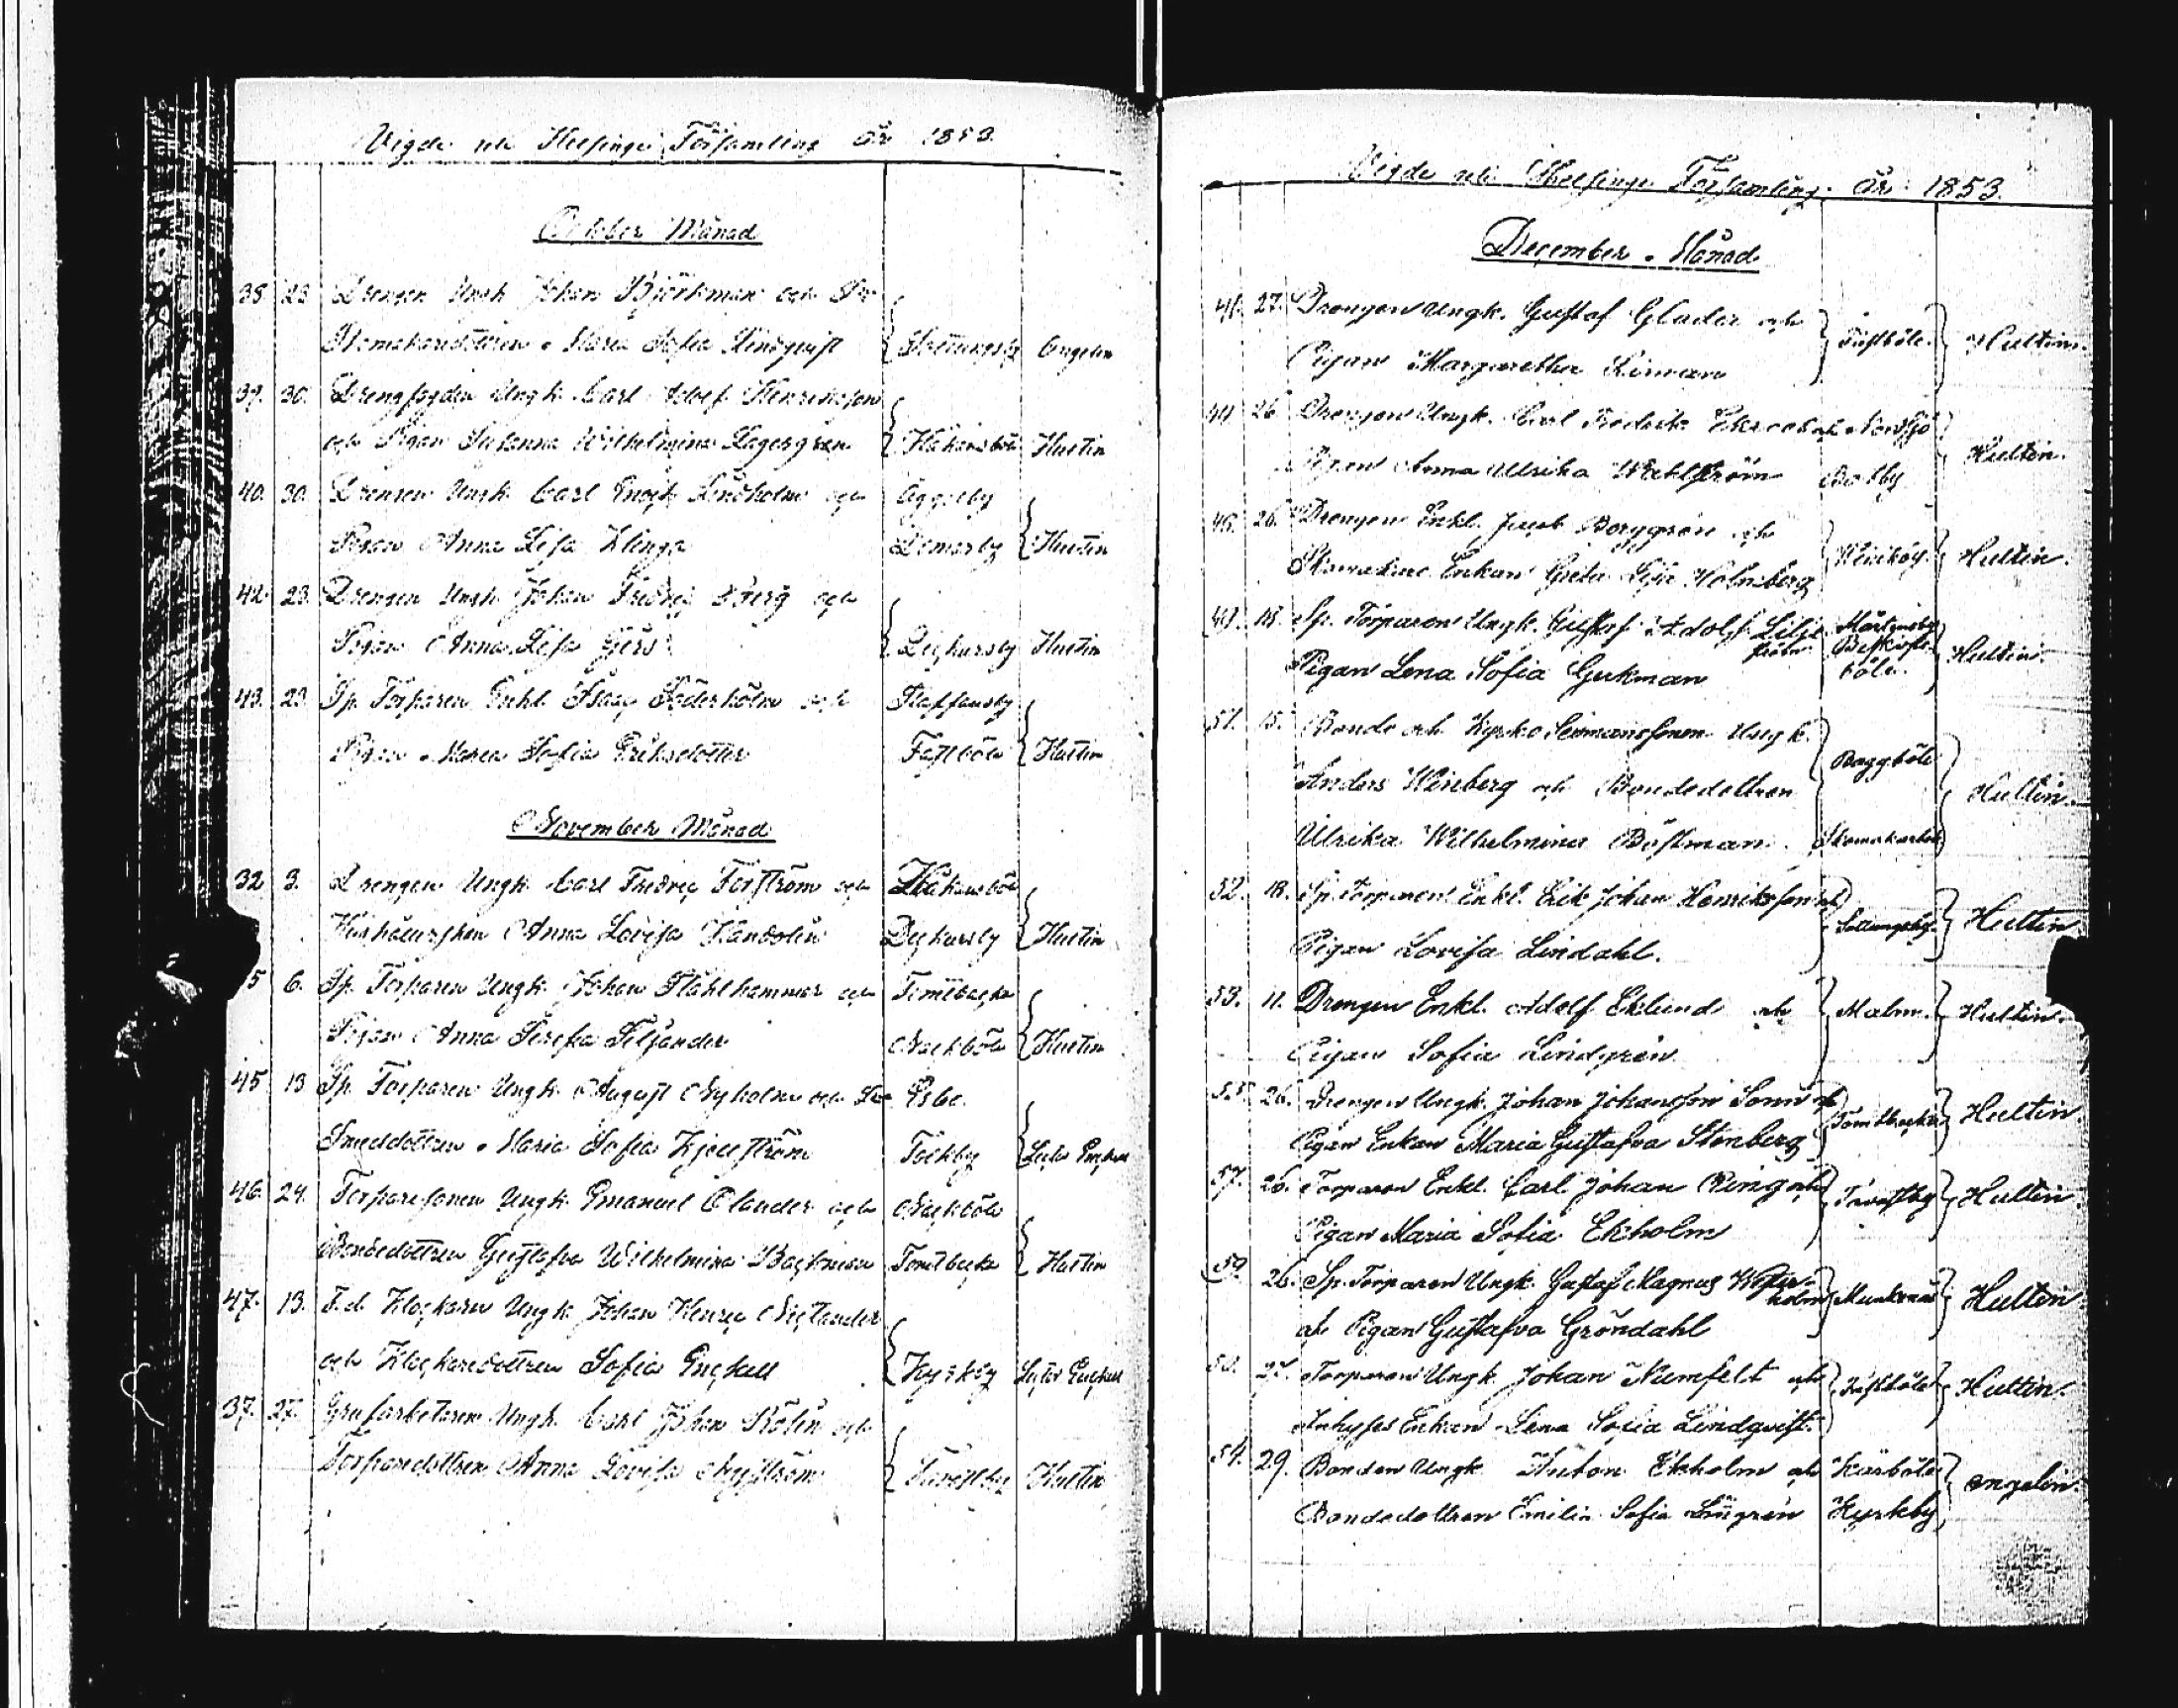 Vigde uti Helsinge Församling År 1853.
October Månad
38. 23. Drengen Ungk. Johan Björkman och
Skomakaredottren Maria Sofia Lindqvist Engelin
39. 30. Drengfogden Ungk. Carl Adolf Henriksson
och Pigan Susanna Wilhelmina Lagergren Håkansböle Hultin
40. 30. Drengen Ungk. Carl Lindholm och Åggelby
Pigan Anna Lisa Klinga Domarby Hultin
42. 23. Drengen Ungk. Johan Fredric Berg och
Pigan Anna Lisa Gers Dickursby Hultin
43. 23. Sp. Torparen Enkl. Isaac Söderholm och Staffansby
Pigan Maria Sofia Eriksdotter Fastböle Hultin
November Månad
32. 3. Drengen Ungk. Carl Fredric Forström och Håkansböle
Hushållerskan Anna Lovisa Sandolin Dickursby Hultin
5 6. Sp. Torparen Ungk. Johan Stählhammar och Tomtbacka
Pigan Anna Siljander Nackböle Hultin
45. 13. Sp. Torparen Ungk. August Nyholm och Esbo
Smeddottren Maria Sofia Kjellström Tolkby
46. 24. Torparesonen Ungk. Emanuel Olander och Nackböle
Bondedottren Gustafva Wilhelmina Backman Tomtbacka Hultin
47. 13. F.d. Klockaren Ungk. Johan Henric
och Klockaredottren Sofia Kyrkby
37. 27. Grufarbetaren Ungk. Carl Johan och
Torparedottren Anna Lovisa Nyström Tavastby Hultin
Vigde uti Helsinge Församling År 1853.
December Månad
41. 27. Drengen Ungk. Gustaf Glader och
Pigan Margaretha Fastböle Hultin.
44. 26. Drengen Ungk. Carl Fredrik Ekroos och Nordsjö
Pigan Anna Ulrika Wahlström Botby Hultin.
48. 26. Drengen Enkl. Jacob Berggrén och
Enkan Greta Lisa Holmberg Hultin.
49. 18. Sp. Torparen Ungk. Gustaf Adolf Lilje- Mårtensby
ström Biskops-
Pigan Lena Sofia Gerkman böle. Hultin.
51. 15. Bonde och Kyrko Ungk.
Anders Wireberg och Bondedottren Baggböle
Ulrika Wilhelmina Böstman. Skomakarböle Hultin.
52. 18. Sp. Torparen Enkl. Erik Johan Henriksson och
Pigan Lovisa Lindahl. Sottungsby. Hultin
53. 11. Drengen Enkl. Adolf Eklund och Malm. Hultin.
Pigan Sofia Lindgrén
55. 26. Drengen Ungk. Johan Johansson Sonn och
Pigan Enkan Maria Gustafva Stenberg Tomtbacka Hultin
57. 26. Torparen Enkl. Carl Johan Ring och Tavastby Hultin.
Pigan Maria Sofia Ekholm
59. 26. Sp. Torparen Ungk. Gustaf Magnus Wester-
holm Munksnäs Hultin
och Pigan Gustafva Gröndahl
50. 27. Torparen Ungk. Johan Numfelt och Fastböle Hultin.
Inhyses Enkan Lena Sofia Lindqvist.
54. 29. Bonden Ungk. Anton Ekholm och Kårböle
Bondedottren Emilia Sofia Kyrkby Engelin.